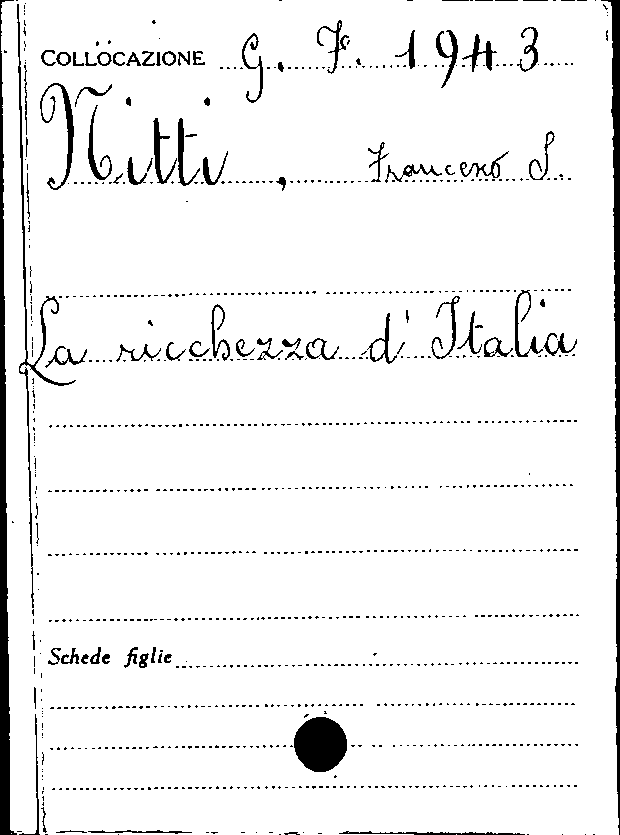 COLLOCAZIONE G. F. 1943
Nitti, Francesco S.
La ricchezza d'Italia
Schede figlie